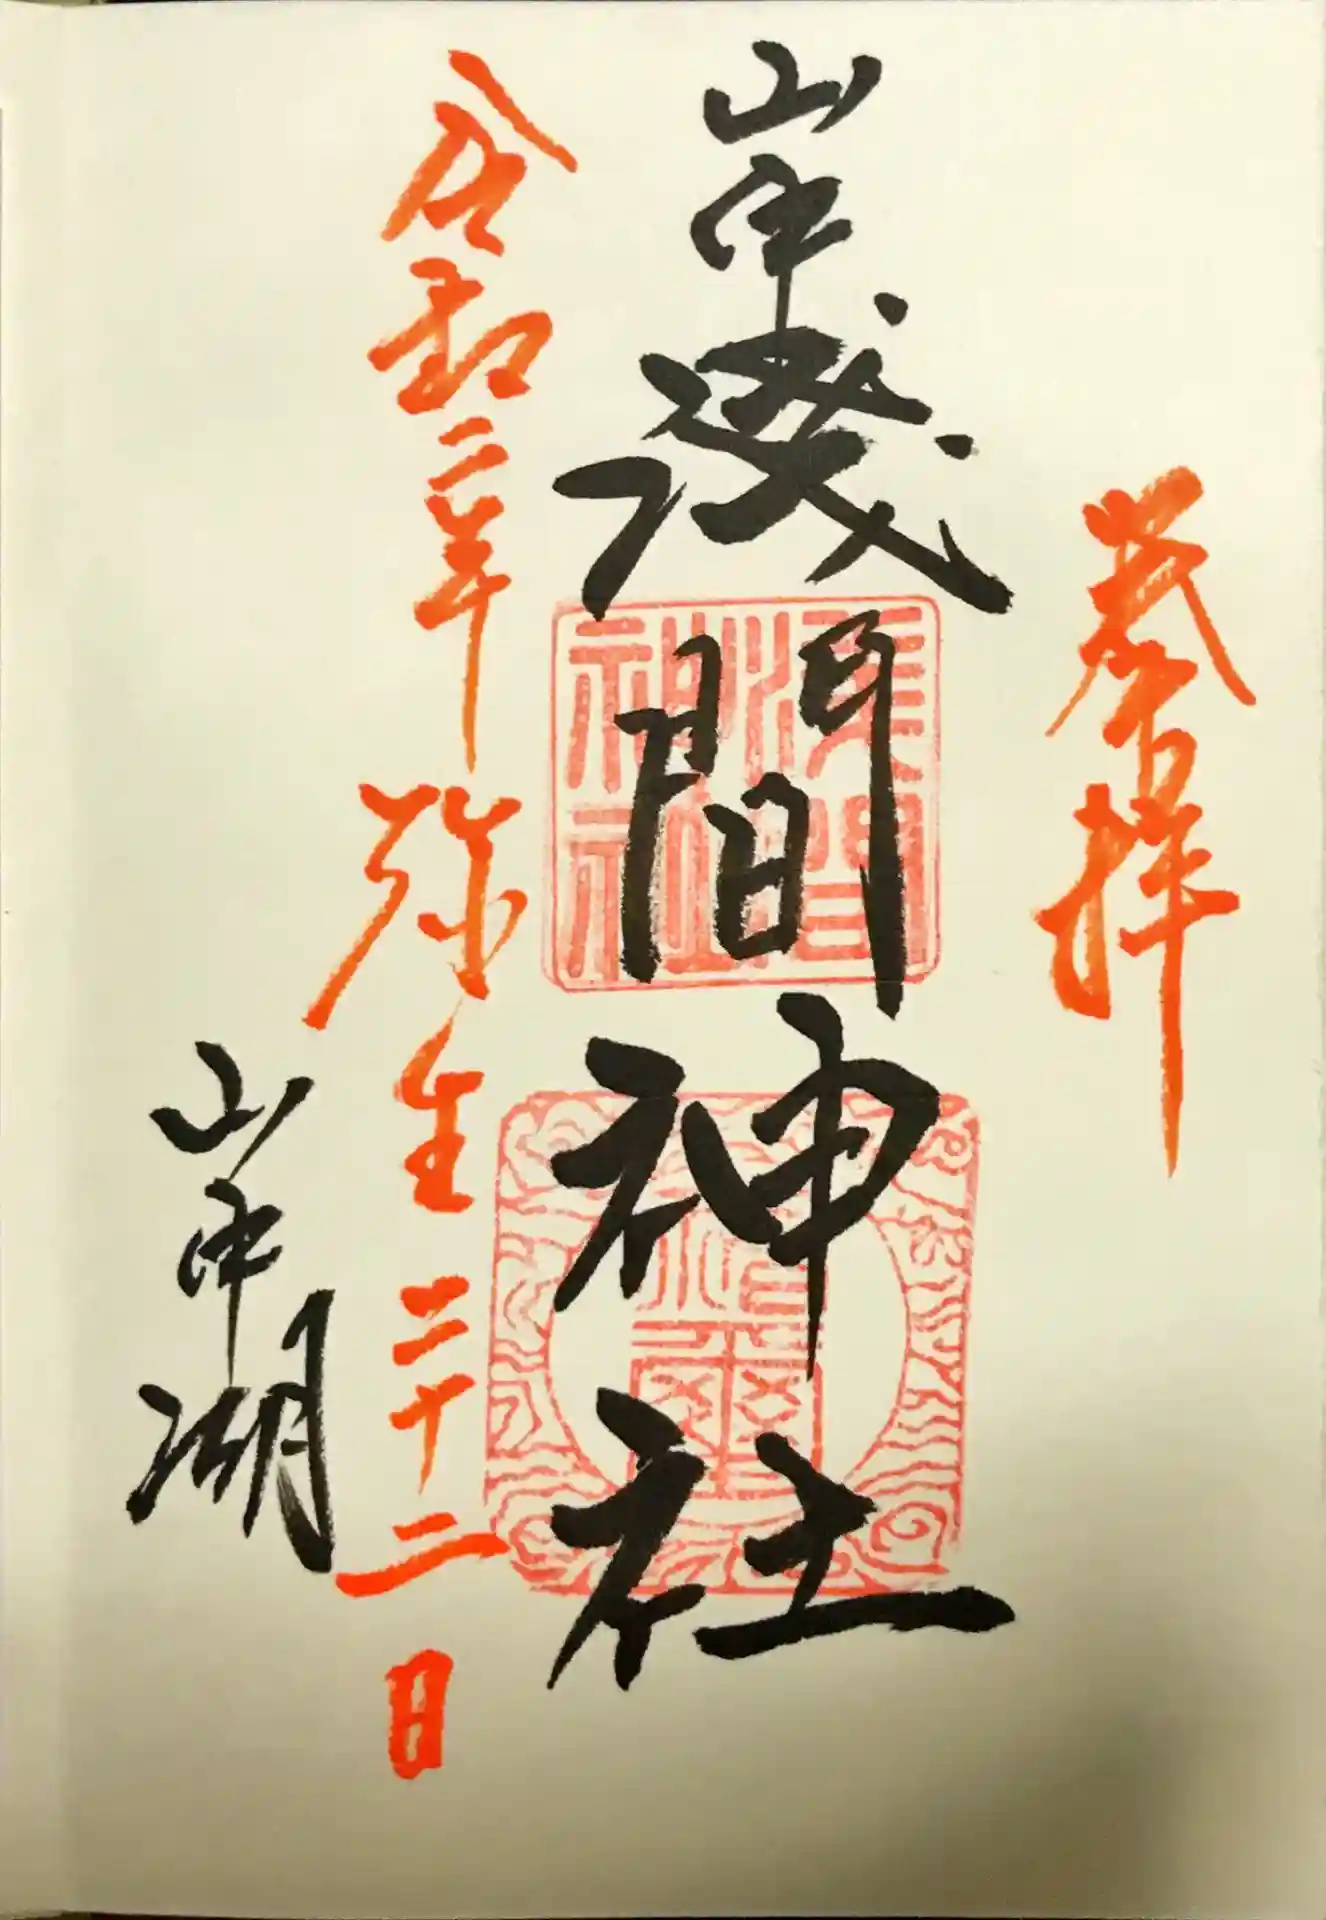 奉拝
山中淺間神社
淺間神社
令和二年弥生二十二日
山中湖